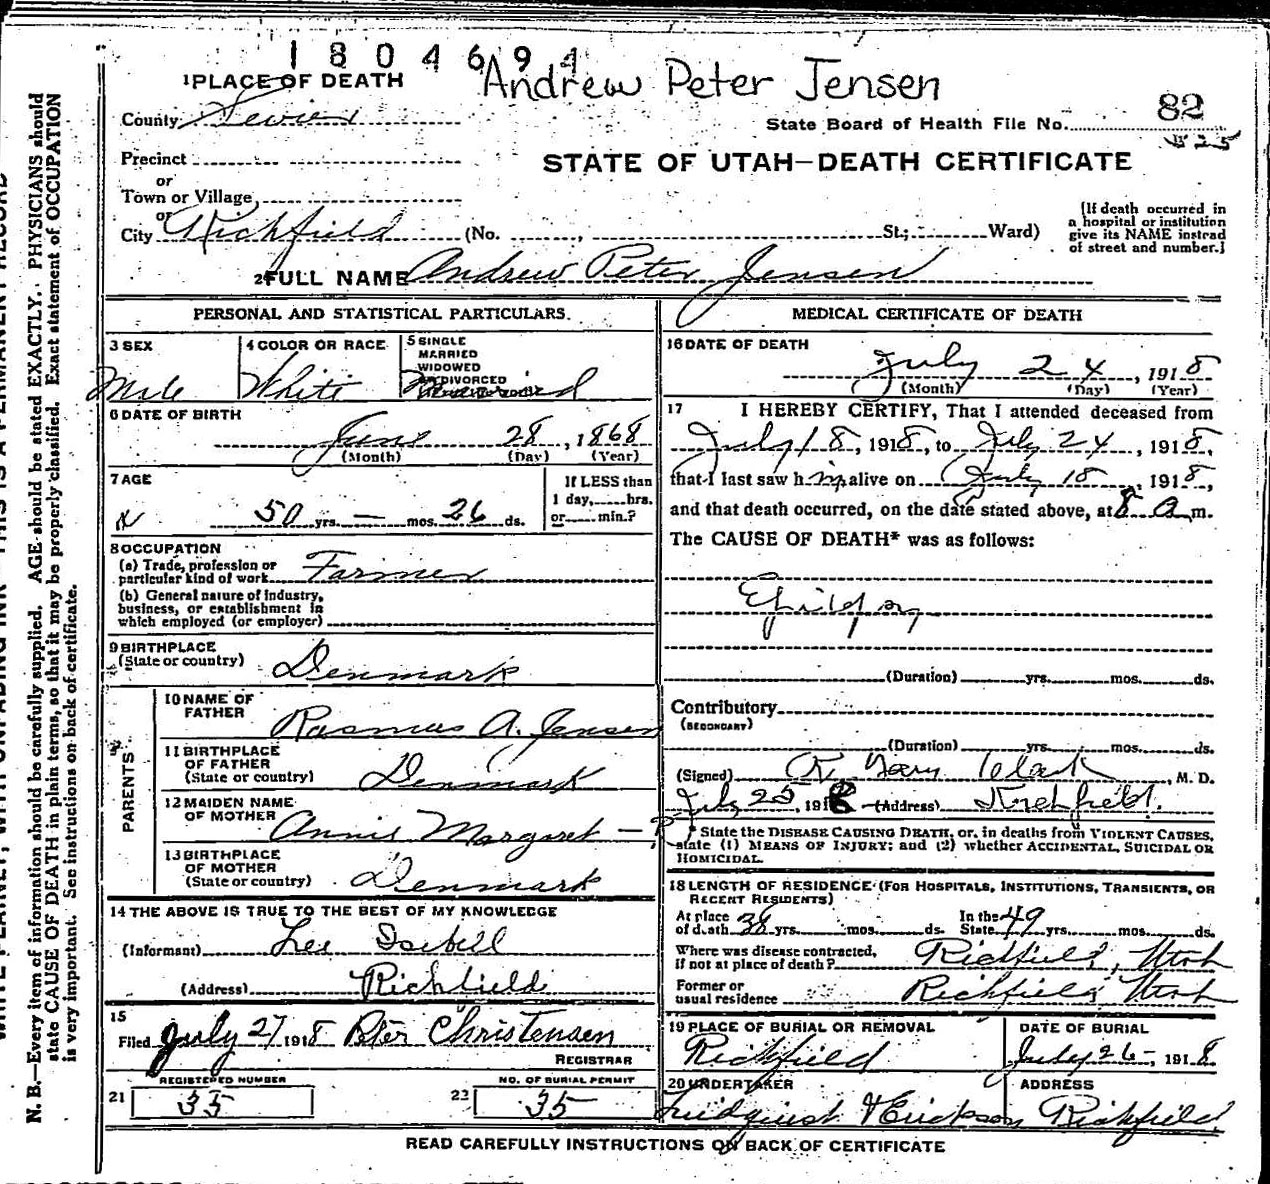 1804694
Andrew Peter Jensen
1 PLACE OF DEATH
County Sevier
State Board of Health File No. 82
525
Precinct
STATE OF UTAH—DEATH CERTIFICATE
or
Town or Village
or
City Richfield (No. , St.; Ward)
[If death occurred in
a hospital or institution
give its NAME instead
of street and number.]
2 FULL NAME Andrew Peter Jensen
PERSONAL AND STATISTICAL PARTICULARS.
3 SEX
Male
4 COLOR OR RACE
White
5 SINGLE
MARRIED
WIDOWED
OR DIVORCED
Married
6 DATE OF BIRTH
June 28, 1868
(Month) (Day) (Year)
7 AGE
50 yrs. — mos. 26 ds.
If LESS than
1 day, hrs.
or min.?
8 OCCUPATION
(a) Trade, profession or
particular kind of work Farmer
(b) General nature of industry,
business, or establishment in
which employed (or employer)
9 BIRTHPLACE
(State or country) Denmark
PARENTS
10 NAME OF
FATHER Rasmus A. Jensen
11 BIRTHPLACE
OF FATHER
(State or country) Denmark
12 MAIDEN NAME
OF MOTHER Annie Margaret — ?
13 BIRTHPLACE
OF MOTHER
(State or country) Denmark
14 THE ABOVE IS TRUE TO THE BEST OF MY KNOWLEDGE
(Informant) Lee Isebell
(Address) Richfield
15
Filed July 27 1918 Peter Christensen
REGISTRAR
REGISTERED NUMBER
21 35
NO. OF BURIAL PERMIT
22 35
MEDICAL CERTIFICATE OF DEATH
16 DATE OF DEATH
July 24, 1918
(Month) (Day) (Year)
17 I HEREBY CERTIFY, That I attended deceased from
July 18, 1918, to July 24, 1918,
that I last saw him alive on July 18, 1918,
and that death occurred, on the date stated above, at 8 a m.
The CAUSE OF DEATH* was as follows:
(Duration) yrs. mos. ds.
Contributory
(SECONDARY)
(Duration) yrs. mos. ds.
(Signed) Clark, M. D.
July 25, 1918 (Address) Richfield.
* State the DISEASE CAUSING DEATH, or, in deaths from VIOLENT CAUSES,
state (1) MEANS OF INJURY; and (2) whether ACCIDENTAL, SUICIDAL OR
HOMICIDAL.
18 LENGTH OF RESIDENCE (FOR HOSPITALS, INSTITUTIONS, TRANSIENTS, OR
RECENT RESIDENTS)
At place
of death yrs. mos. ds.
In the
State 49 yrs. mos. ds.
Where was disease contracted,
if not at place of death? Richfield, Utah
Former or
usual residence Richfield Utah
19 PLACE OF BURIAL OR REMOVAL
Richfield
DATE OF BURIAL
July 26 — 1918
20 UNDERTAKER
Lindquist & Erickson
ADDRESS
Richfield
READ CAREFULLY INSTRUCTIONS ON BACK OF CERTIFICATE
N. B.—Every item of information should be carefully supplied. AGE should be stated EXACTLY. PHYSICIANS should
state CAUSE OF DEATH in plain terms, so that it may be properly classified. Exact statement of OCCUPATION
is very important. See instructions on back of certificate.